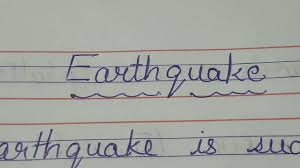 Earthquake
arthquake is suc